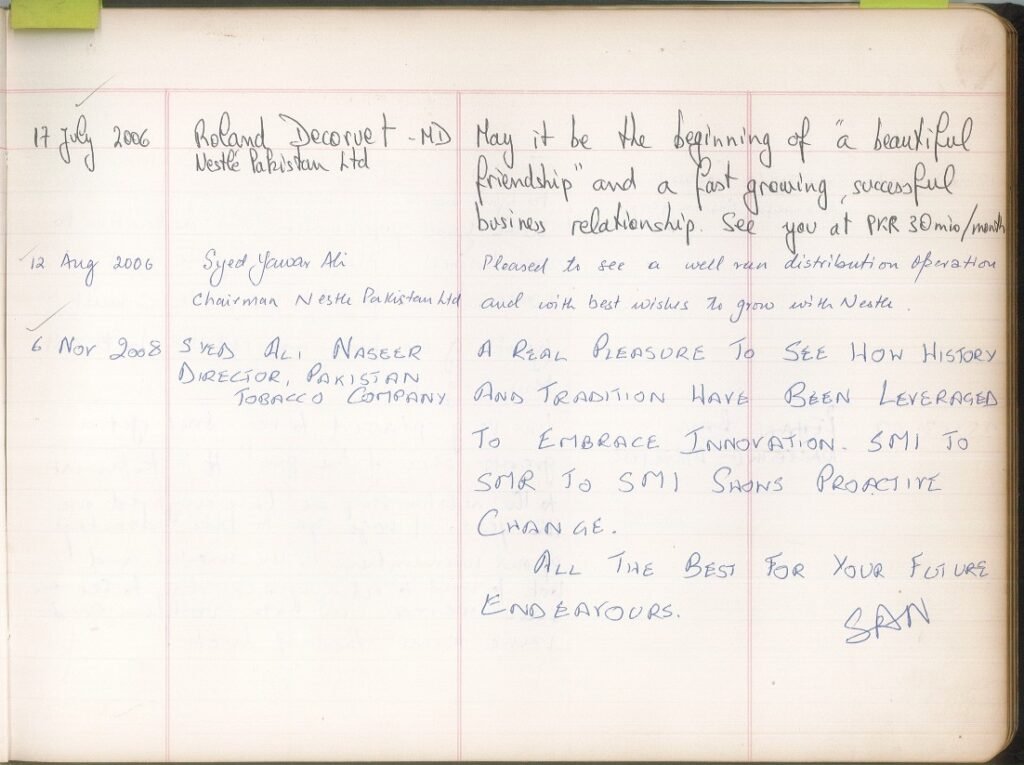 17 July 2006 Roland Decorvet - MD May it be the beginning of "a beautiful
Nestlé Pakistan Ltd friendship" and a fast growing, successful
business relationship. See you at PKR 30mio/month
12 Aug 2006 Syed Yawar Ali Pleased to see a well run distribution operation
Chairman Nestle Pakistan Ltd and with best wishes to grow with Nestle.
6 Nov 2008 SYED ALI NASEER A REAL PLEASURE TO SEE HOW HISTORY
DIRECTOR, PAKISTAN
TOBACCO COMPANY AND TRADITION HAVE BEEN LEVERAGED
TO EMBRACE INNOVATION. SMI TO
SMR TO SMI SHOWS PROACTIVE
CHANGE.
ALL THE BEST FOR YOUR FUTURE
ENDEAVOURS.
SAN